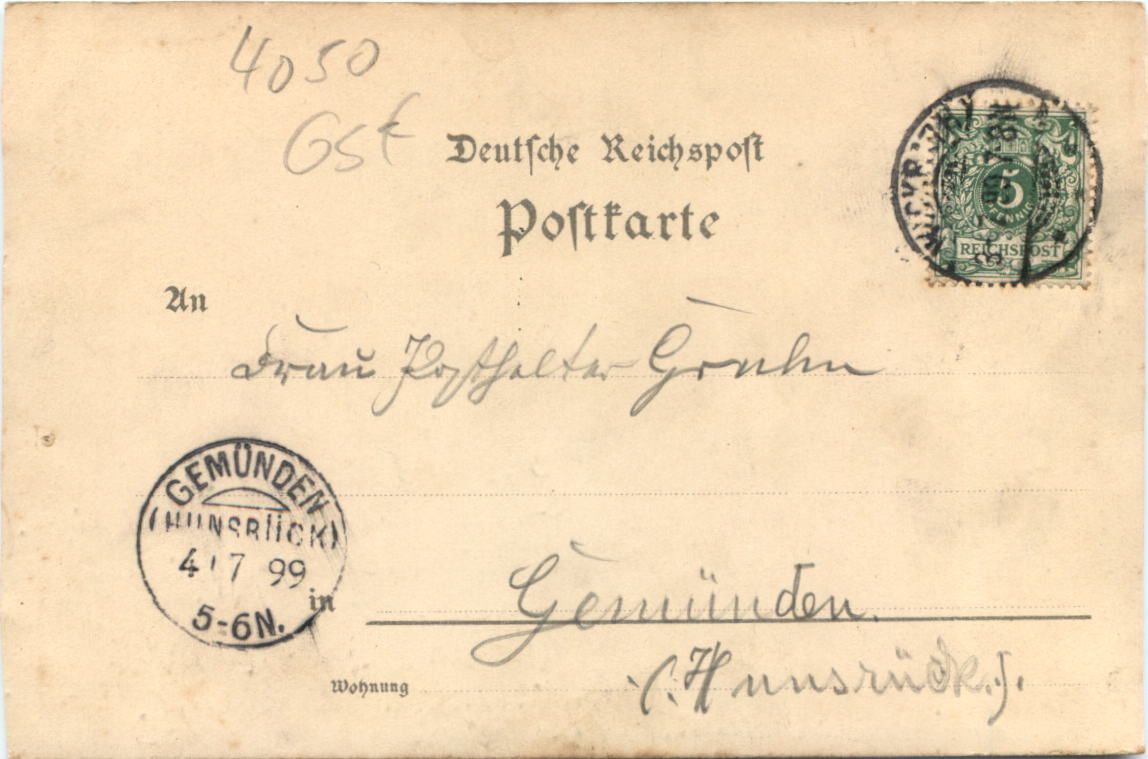 4050
GSt
Deutsche Reichspost
Postkarte
5
REICHSPOST
7-8N
An
Frau Posthalter
GEMÜNDEN
(HUNSRÜCK)
4 7 99
5-6N.
in
Gemünden.
Wohnung
(Hunsrück.).